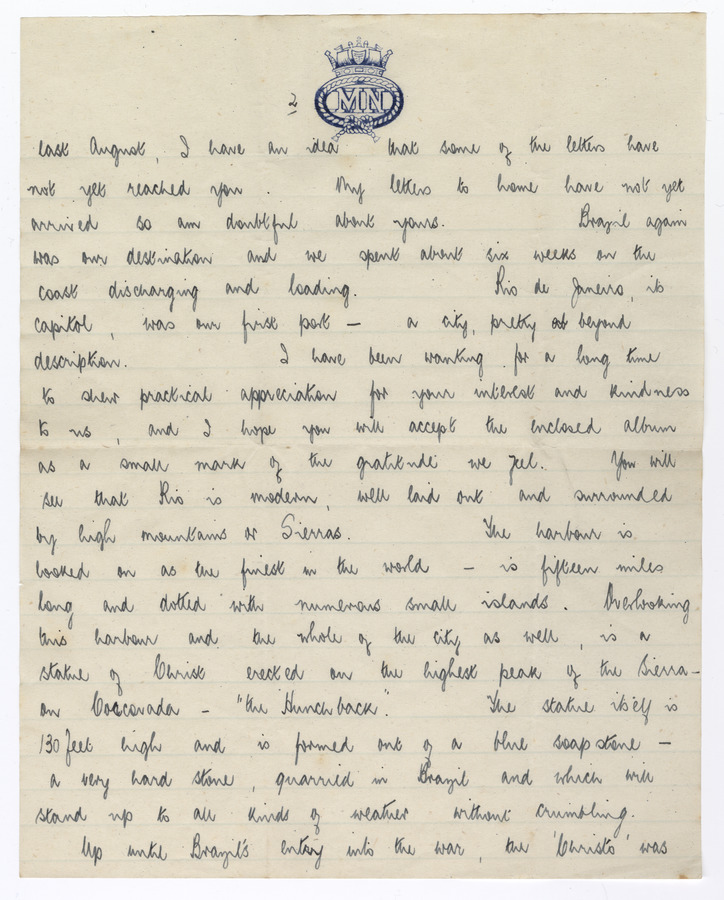 2
MN
last August, I have an idea that some of the letters have
not yet reached you. My letters to home have not yet
arrived so am doubtful about yours. Brazil again
was our destination and we spent about six weeks on the
coast discharging and loading. Rio de Janeiro, its
capitol, was our first port – a city, pretty beyond
description. I have been wanting for a long time
to shew practical appreciation for your interest and kindness
to us, and I hope you will accept the enclosed album
as a small mark of the gratitude we feel. You will
see that Rio is modern, well laid out and surrounded
by high mountains or Sierras. The harbour is
looked on as the finest in the world – is fifteen miles
long and dotted with numerous small islands. Overlooking
this harbour and the whole of the city as well, is a
statue of Christ erected on the highest peak of the Sierra –
on Coccovada – "the Hunchback". The statue itself is
130 feet high and is formed out of a blue soapstone –
a very hard stone, quarried in Brazil and which will
stand up to all kinds of weather without crumbling.
Up until Brazil's entry into the war, the 'Christo' was